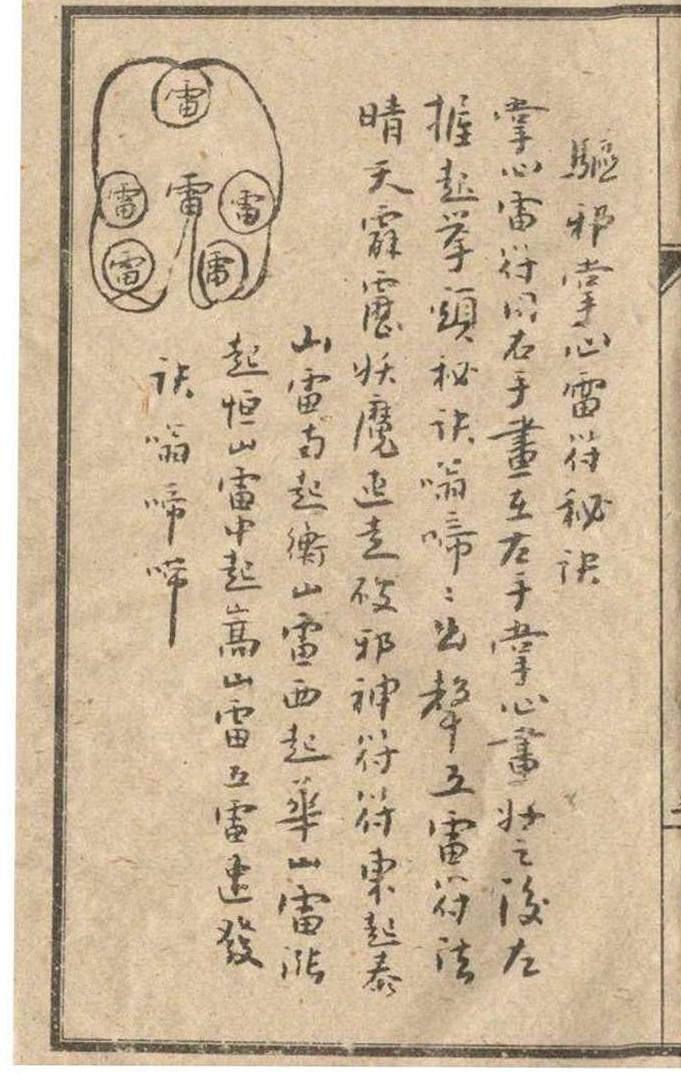 驅邪掌心雷符秘訣
掌心雷符用右手畫在左手掌心畫好之後左
握起拳頭秘訣嗡啼々出聲五雷符法
晴天霹靂妖魔走破邪神符符東起泰
山雷南起衡山雷西起華山雷北
起恒山雷中起嵩山雷五雷速發
訣嗡啼啼
雷
雷 雷 雷
雷 雷